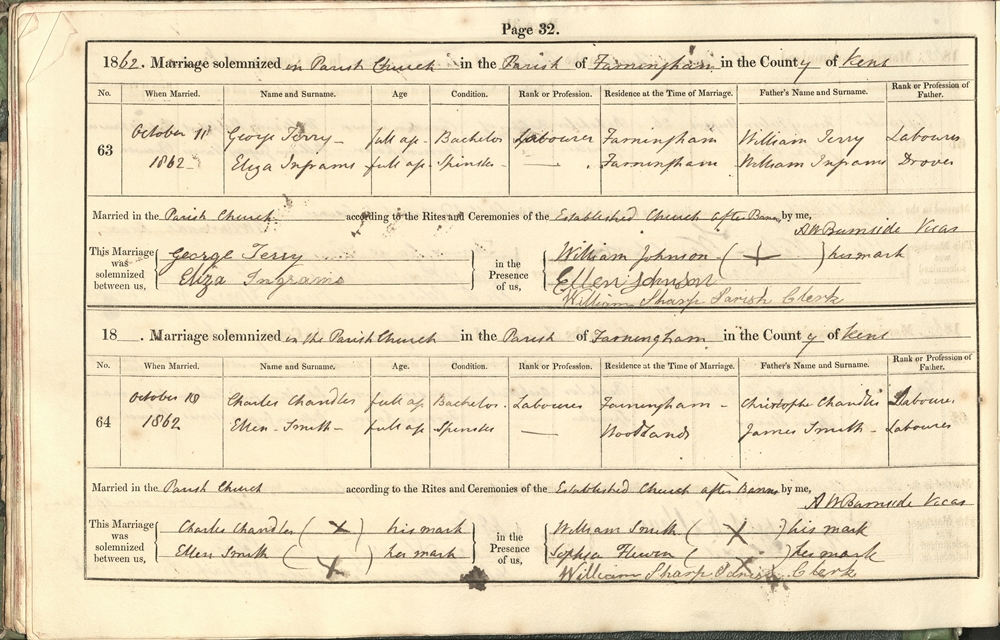 Page 32.
1862. Marriage solemnized in Parish Church in the Parish of Farningham in the County of Kent
No. When Married. Name and Surname. Age Condition. Rank or Profession. Residence at the Time of Marriage. Father's Name and Surname. Rank or Profession of Father.
63 October 11 George Terry full age Bachelor Labourer Farningham William Terry Labourer
1862 Eliza Ingrams full age Spinster — Farningham William Ingrams Drover
Married in the Parish Church according to the Rites and Ceremonies of the Established Church after Banns by me,
A W Burnside Vicar
This Marriage was solemnized between us, George Terry in the Presence of us, William Johnson ( X ) his mark
Eliza Ingrams Ellen Johnson
William Sharp Parish Clerk
18 . Marriage solemnized in the Parish Church in the Parish of Farningham in the County of Kent
No. When Married. Name and Surname. Age. Condition. Rank or Profession. Residence at the Time of Marriage. Father's Name and Surname. Rank or Profession of Father.
64 October 18 Charles Chandler full age Bachelor Labourer Farningham Christopher Chandler Labourer
1862 Ellen Smith full age Spinster — Woodlands James Smith Labourer
Married in the Parish Church according to the Rites and Ceremonies of the Established Church after Banns by me,
A W Burnside Vicar
This Marriage was solemnized between us, Charles Chandler ( X ) his mark in the Presence of us, William Smith ( X ) his mark
Ellen Smith ( X ) her mark Sophia ( X ) her mark
William Sharp Parish Clerk